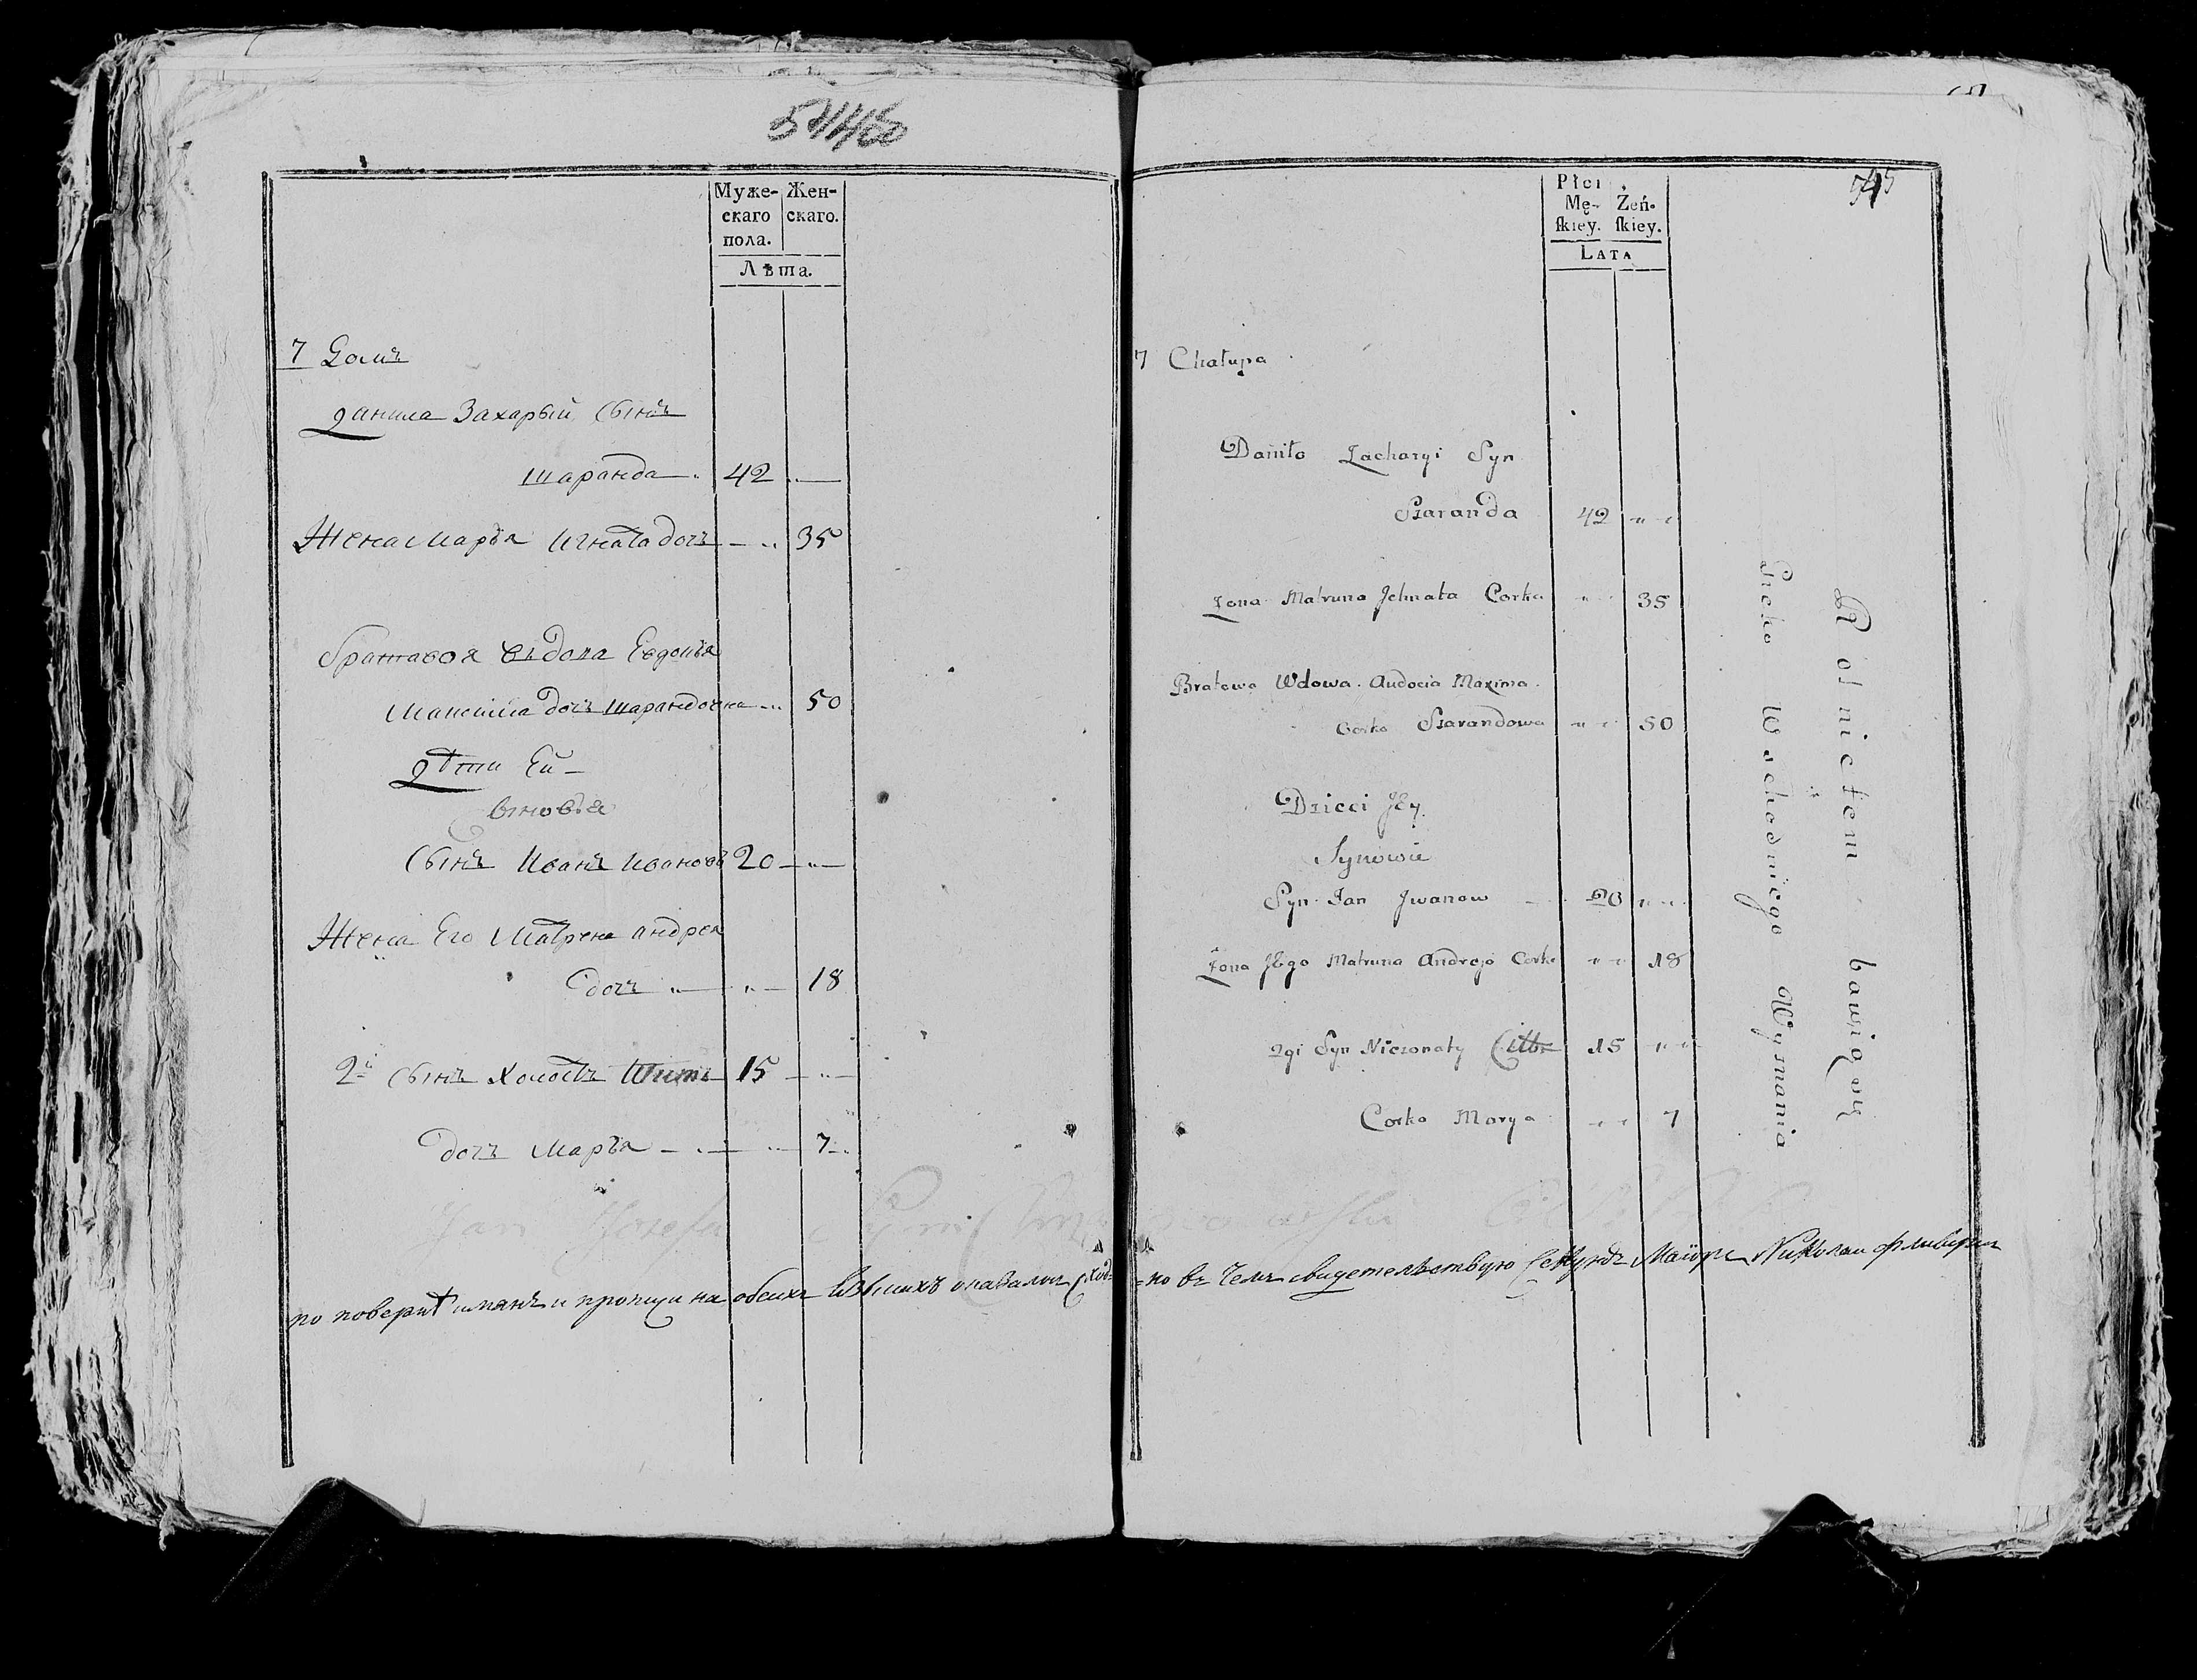 Муже-
скаго
пола.
Жен-
скаго.
Лѣта.
7 Домъ
Данила Захарый Сынъ
Шаранда
42
Жена Марья Игната дочъ
35
Братавоя вдова Евдокья
Максима дочъ Шарандочка
50
Дѣти Ей
Сыновья
Сынъ Иванъ Ивановъ
20
Жена Его Матрена Андрея
дочъ
18
2й Сынъ Холостъ
15
дочъ Марья
7
Płci
Mę-
ſkiey.
Żeń-
ſkiey.
LATA
545
7 Chałupa
Daniło Zacharyi Syn
Szaranda
42
Zona Matruna Jehnata Corka
35
Bratowa Wdowa Audocia Maxima
Corka Szarandowa
50
Dzieci Jey
Synowie
Syn Jan Jwanow
20
Zona Jego Matruna Andreja Corka
18
2gi Syn Nieżonaty
15
Corka Marya
7
Rolnictem bawiący
Greko Wschodniego Wyznania
Jan Jozefa Syn
по поверке и на обеихъ оказалось сход-
но въ чемъ свидетельствую Секундъ Маіоръ Николай